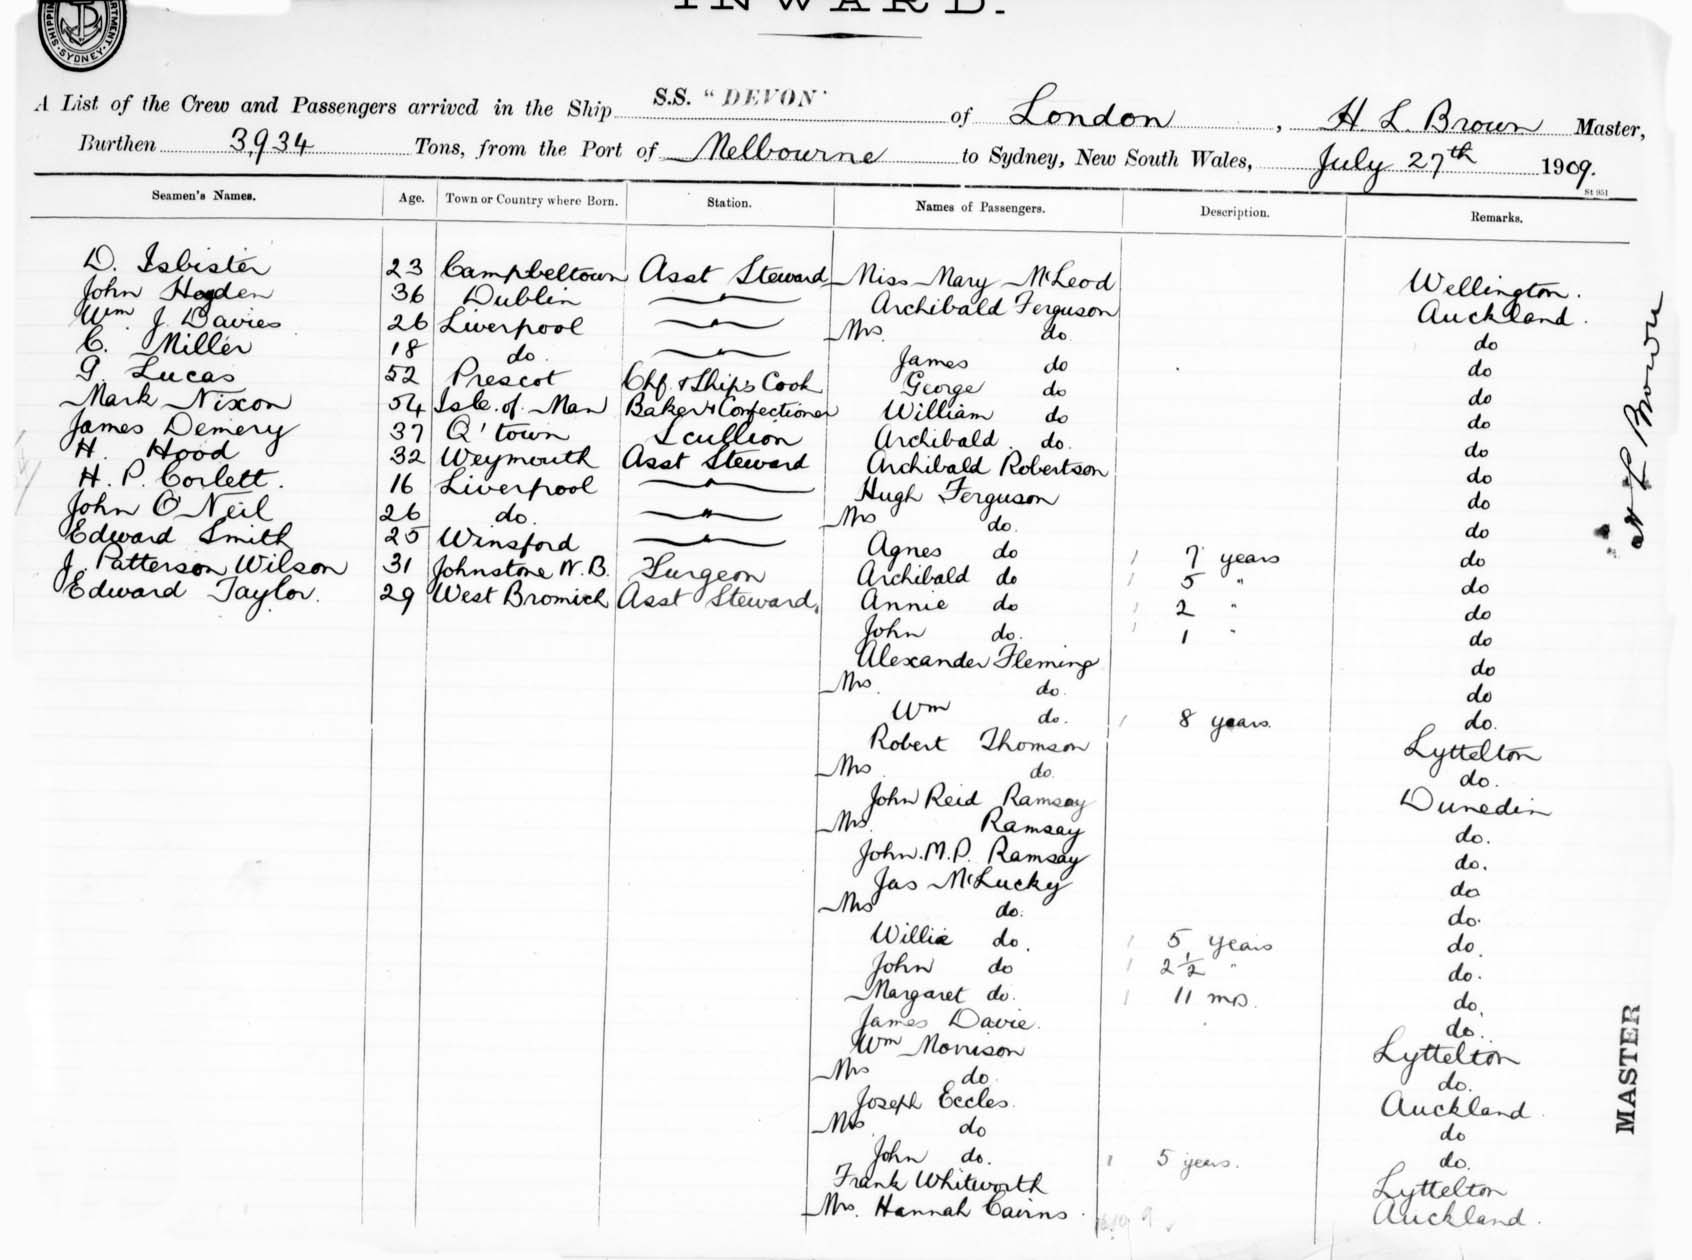 INWARD.
SYDNEY
A List of the Crew and Passengers arrived in the Ship S.S. "DEVON" of London, H. L. Brown Master,
Burthen 3,934 Tons, from the Port of Melbourne to Sydney, New South Wales, July 27th 1909.
St 951
Seamen's Names. Age. Town or Country where Born. Station. Names of Passengers. Description. Remarks.
D. Isbister 23 Campbeltown Asst Steward Miss Mary McLeod Wellington.
John Hogden 36 Dublin " Archibald Ferguson Auckland.
Wm J. Davies 26 Liverpool " Mrs do do
C. Miller 18 do. " James do do
G. Lucas 52 Prescot Chf. & Ship's Cook George do do
Mark Nixon 54 Isle. of. Man Baker & Confectioner William do do
James Demery 37 Q'town Scullion Archibald. do. do
H. Hood 32 Weymouth Asst Steward Archibald Robertson do
H. P. Corlett. 16 Liverpool " Hugh Ferguson do
John O'Neil 26 do. " Mrs do. do
Edward Smith 25 Winsford " Agnes do 7 years do
J. Patterson Wilson 31 Johnstone N.B. Surgeon Archibald do 5 " do
Edward Taylor. 29 West Bromich Asst Steward. Annie do 2 " do
John do. 1 " do
Alexander Fleming do
Mrs. do. do
Wm do. 8 years. do.
Robert Thomson Lyttelton
Mrs do. do.
John Reid Ramsay Dunedin
Mrs. Ramsay do.
John. M. P. Ramsay do.
Jas McLucky do
Mrs do. do.
Willie do. 5 years do.
John do 2½ " do.
Margaret do. 11 mos. do.
James Davie. do.
Wm Morrison Lyttelton
Mrs do. do.
Joseph Eccles. Auckland.
Mrs do do
John do. 5 years. do.
Frank Whitworth Lyttelton
Mrs. Hannah Cairns. Auckland.
H L Brown
MASTER